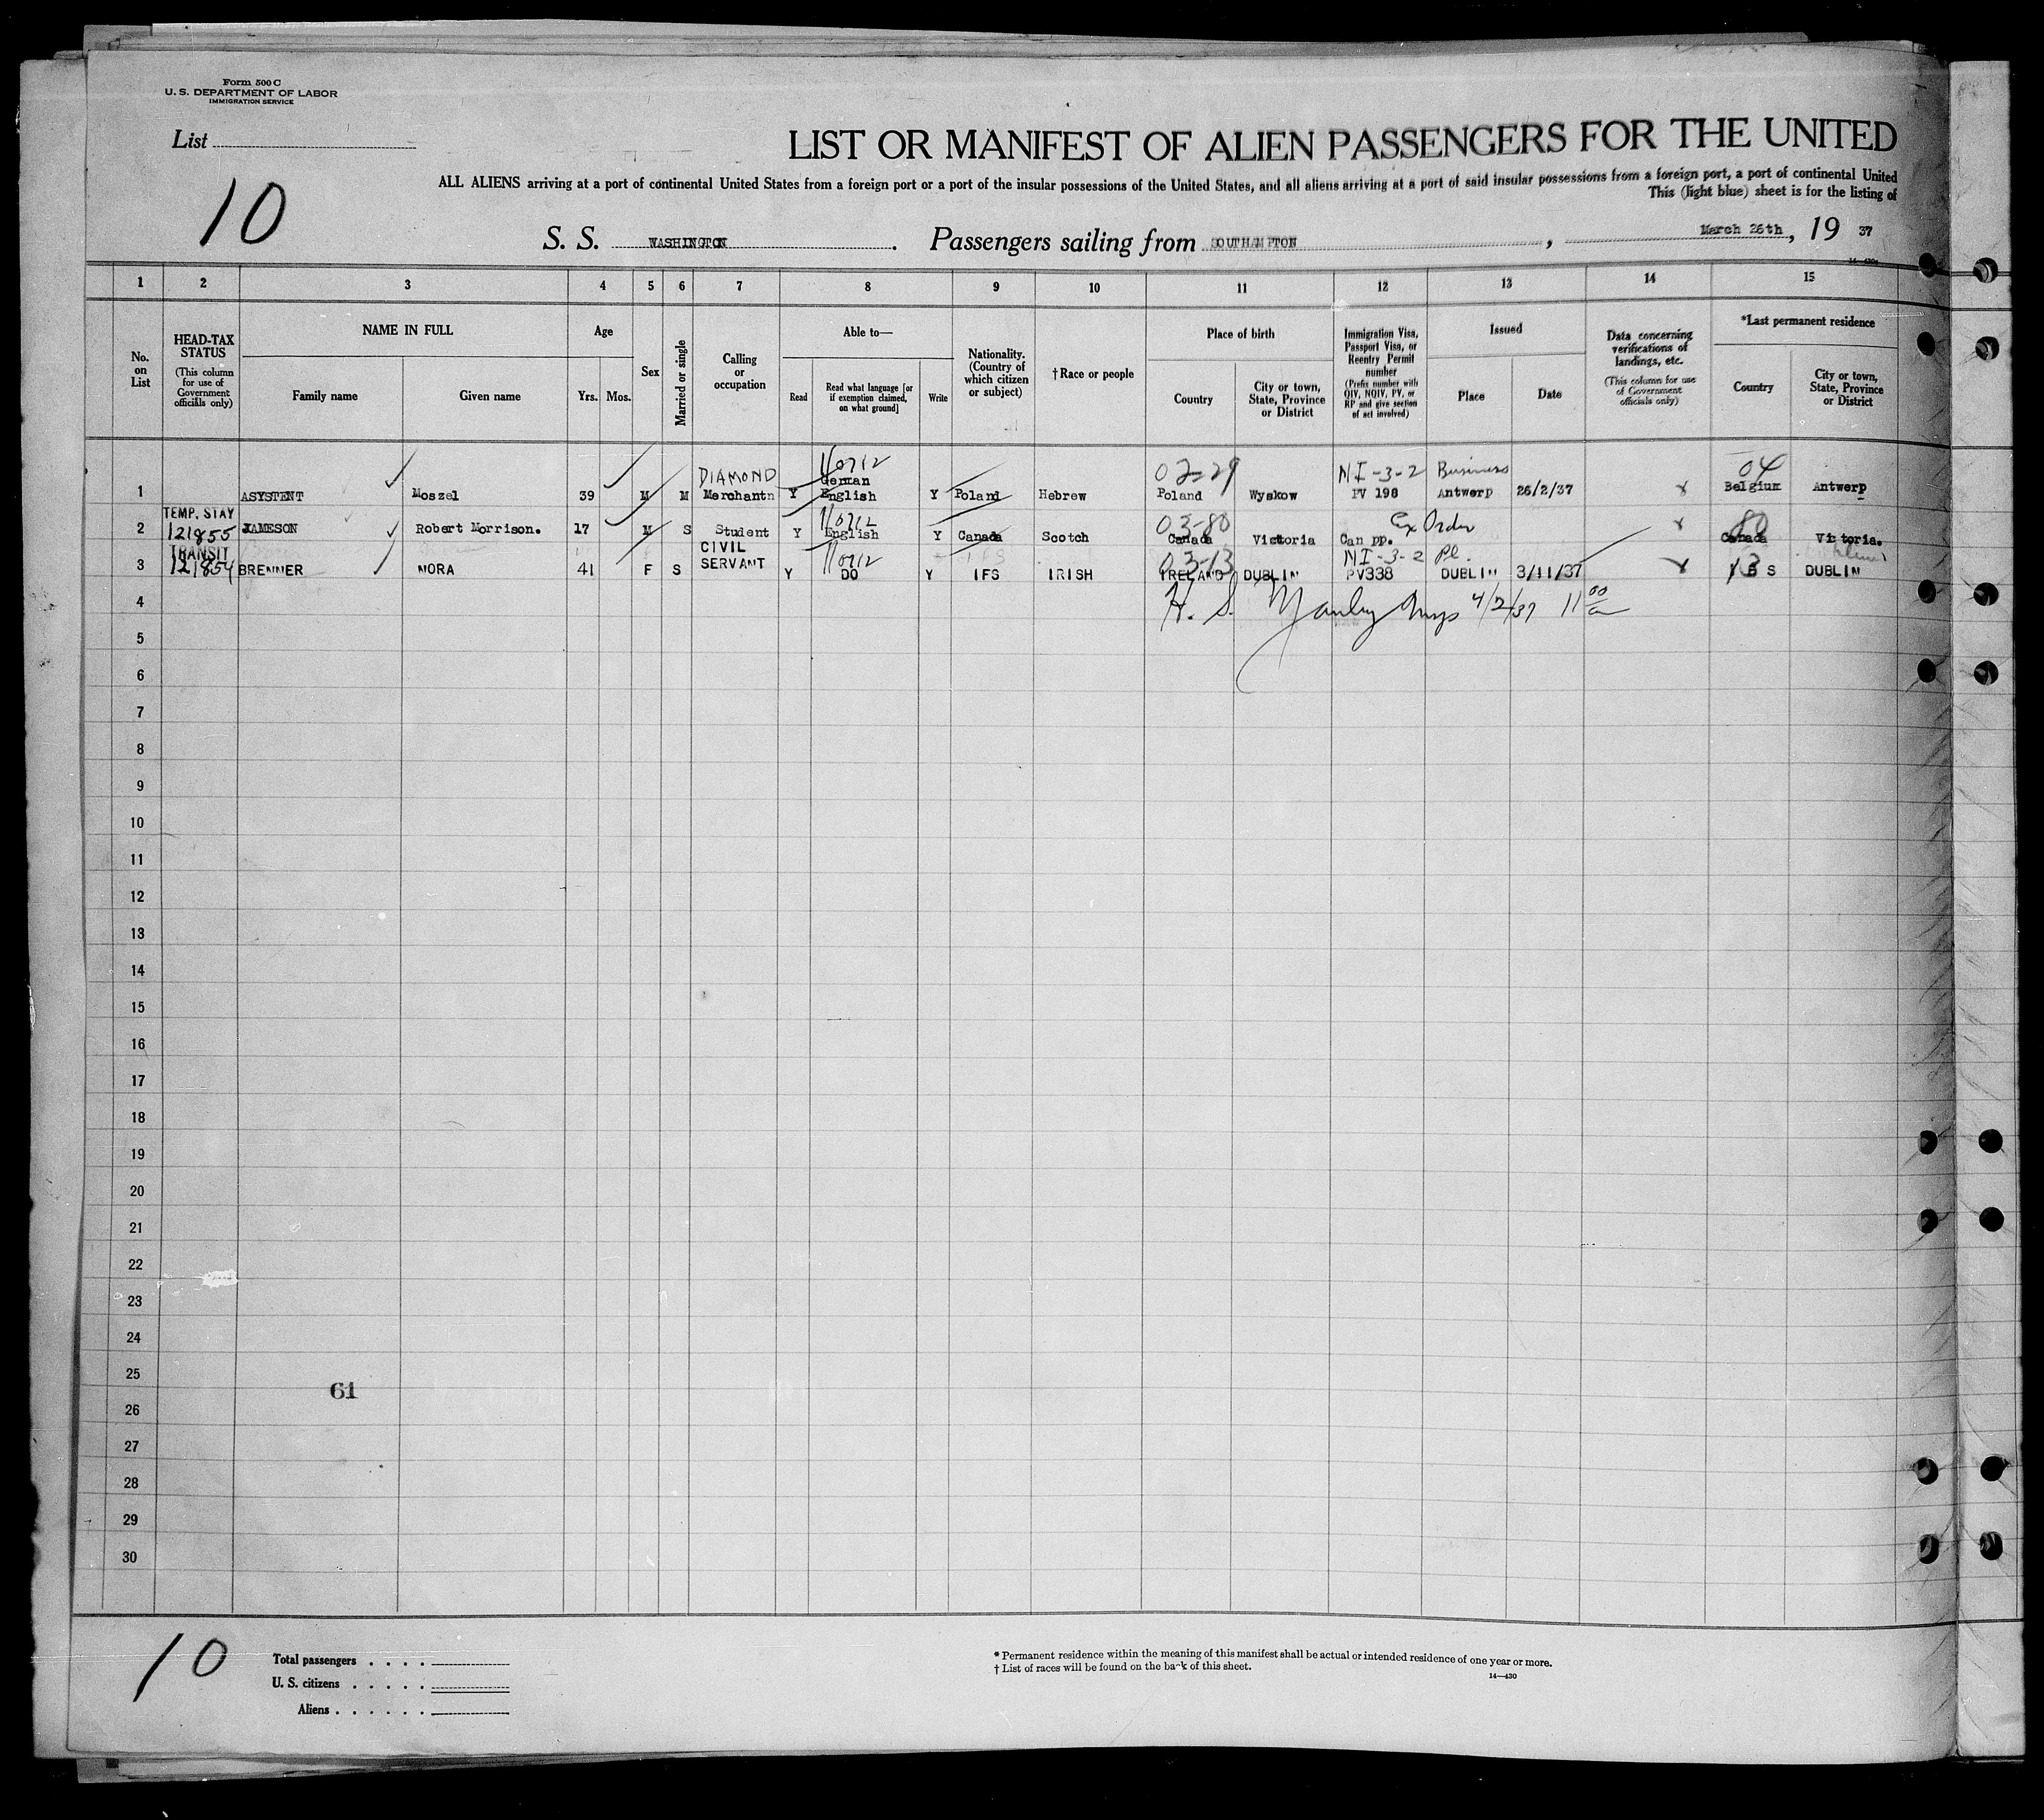 Form 500 C
U. S. DEPARTMENT OF LABOR
IMMIGRATION SERVICE
List
10
LIST OR MANIFEST OF ALIEN PASSENGERS FOR THE UNITED
ALL ALIENS arriving at a port of continental United States from a foreign port or a port of the insular possessions of the United States, and all aliens arriving at a port of said insular possessions from a foreign port, a port of continental United
This (light blue) sheet is for the listing of
S. S. WASHINGTON. Passengers sailing from SOUTHAMPTON, March 26th, 19 37
14-430a
1 2 3 4 5 6 7 8 9 10 11 12 13 14 15
No. on List
HEAD-TAX STATUS
(This column for use of Government officials only)
NAME IN FULL
Family name
Given name
Age
Yrs. Mos.
Sex
Married or single
Calling or occupation
Able to—
Read
Read what language [or if exemption claimed, on what ground]
Write
Nationality. (Country of which citizen or subject)
†Race or people
Place of birth
Country
City or town, State, Province or District
Immigration Visa, Passport Visa, or Reentry Permit number
(Prefix number with QIV, NQIV, PV, or RP and give section of act involved)
Issued
Place
Date
Data concerning verifications of landings, etc.
(This column for use of Government officials only)
*Last permanent residence
Country
City or town, State, Province or District
DIAMOND 110712 German 02-29 NI-3-2 Business 04
1 ASYSTENT Moszel 39 M M Merchantn Y English Y Poland Hebrew Poland Wyskow PV 198 Antwerp 26/2/37 Belgium Antwerp
TEMP. STAY 110712 03-80 Ex Order 80
2 121855 JAMESON Robert Morrison. 17 M S Student Y English Y Canada Scotch Canada Victoria Can pp. Canada Victoria.
TRANSIT CIVIL 110712 03-13 NI-3-2 Pl.
3 121854 BRENNER NORA 41 F S SERVANT Y DO Y IFS IRISH IRELAND DUBLIN PV338 DUBLIN 3/11/37 13 S DUBLIN
4 H. S. Manley Insp 4/2/37 11 00/a
5
6
7
8
9
10
11
12
13
14
15
16
17
18
19
20
21
22
23
24
25
61
26
27
28
29
30
10
Total passengers . . . .
U. S. citizens . . . . .
Aliens . . . . . .
* Permanent residence within the meaning of this manifest shall be actual or intended residence of one year or more.
† List of races will be found on the back of this sheet.
14—430